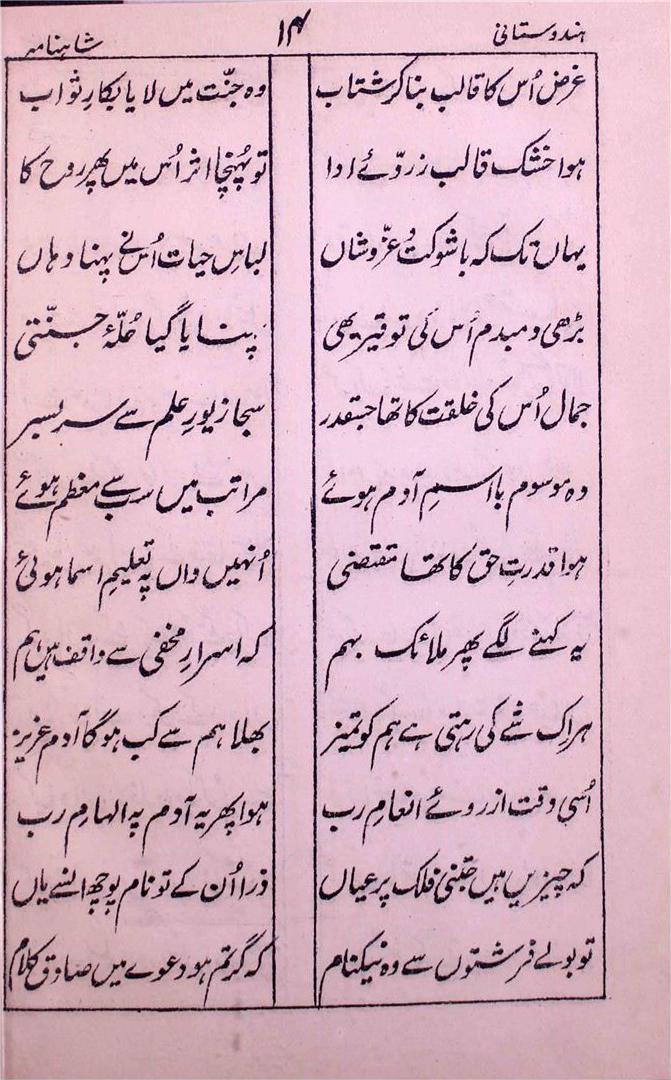 ہندوستانی ۱۴ شاہنامہ
غرض اُس کا قالب بنا کر شتاب وہ جنّت میں لایا بکارِ ثواب
ہوا خشک قالب ز روّئے ادا تو پُہنچا اثر اُس میں پھر روح کا
یہاں تک کہ با شوکت و عزّ و شاں لباسِ حیات اُس نے پہنا وہاں
بڑھی دمبدم اُس کی توقیر بھی پنایا گیا حُلّۂ جنّتی
جمال اُس کی خلقت کا تھا جسقدر سجا زیورِ علم سے سربسر
وہ موسوم با اسمِ آدم ہوئے مراتب میں سب سے معظم ہوئے
ہوا قدرتِ حق کا تھا مقتضی اُنہیں واں پہ تعلیمِ اسما ہوئی
یہ کہنے لگے پھر ملائک بہم کہ اسرارِ مخفی سے واقف ہیں ہم
ہر اک شے کی رہتی ہے ہم کو تمیز بھلا ہم سے کب ہوگا آدم عزیز
اُسی وقت از روئے انعامِ رب ہوا پھر یہ آدم پہ الہامِ رب
کہ چیزیں ہیں جتنی فلک پر عیاں ذرا اُن کے تو نام پوچھ انسے یاں
تو بولے فرشتوں سے وہ نیکنام کہ گر تم ہو دعوے میں صادق کلام